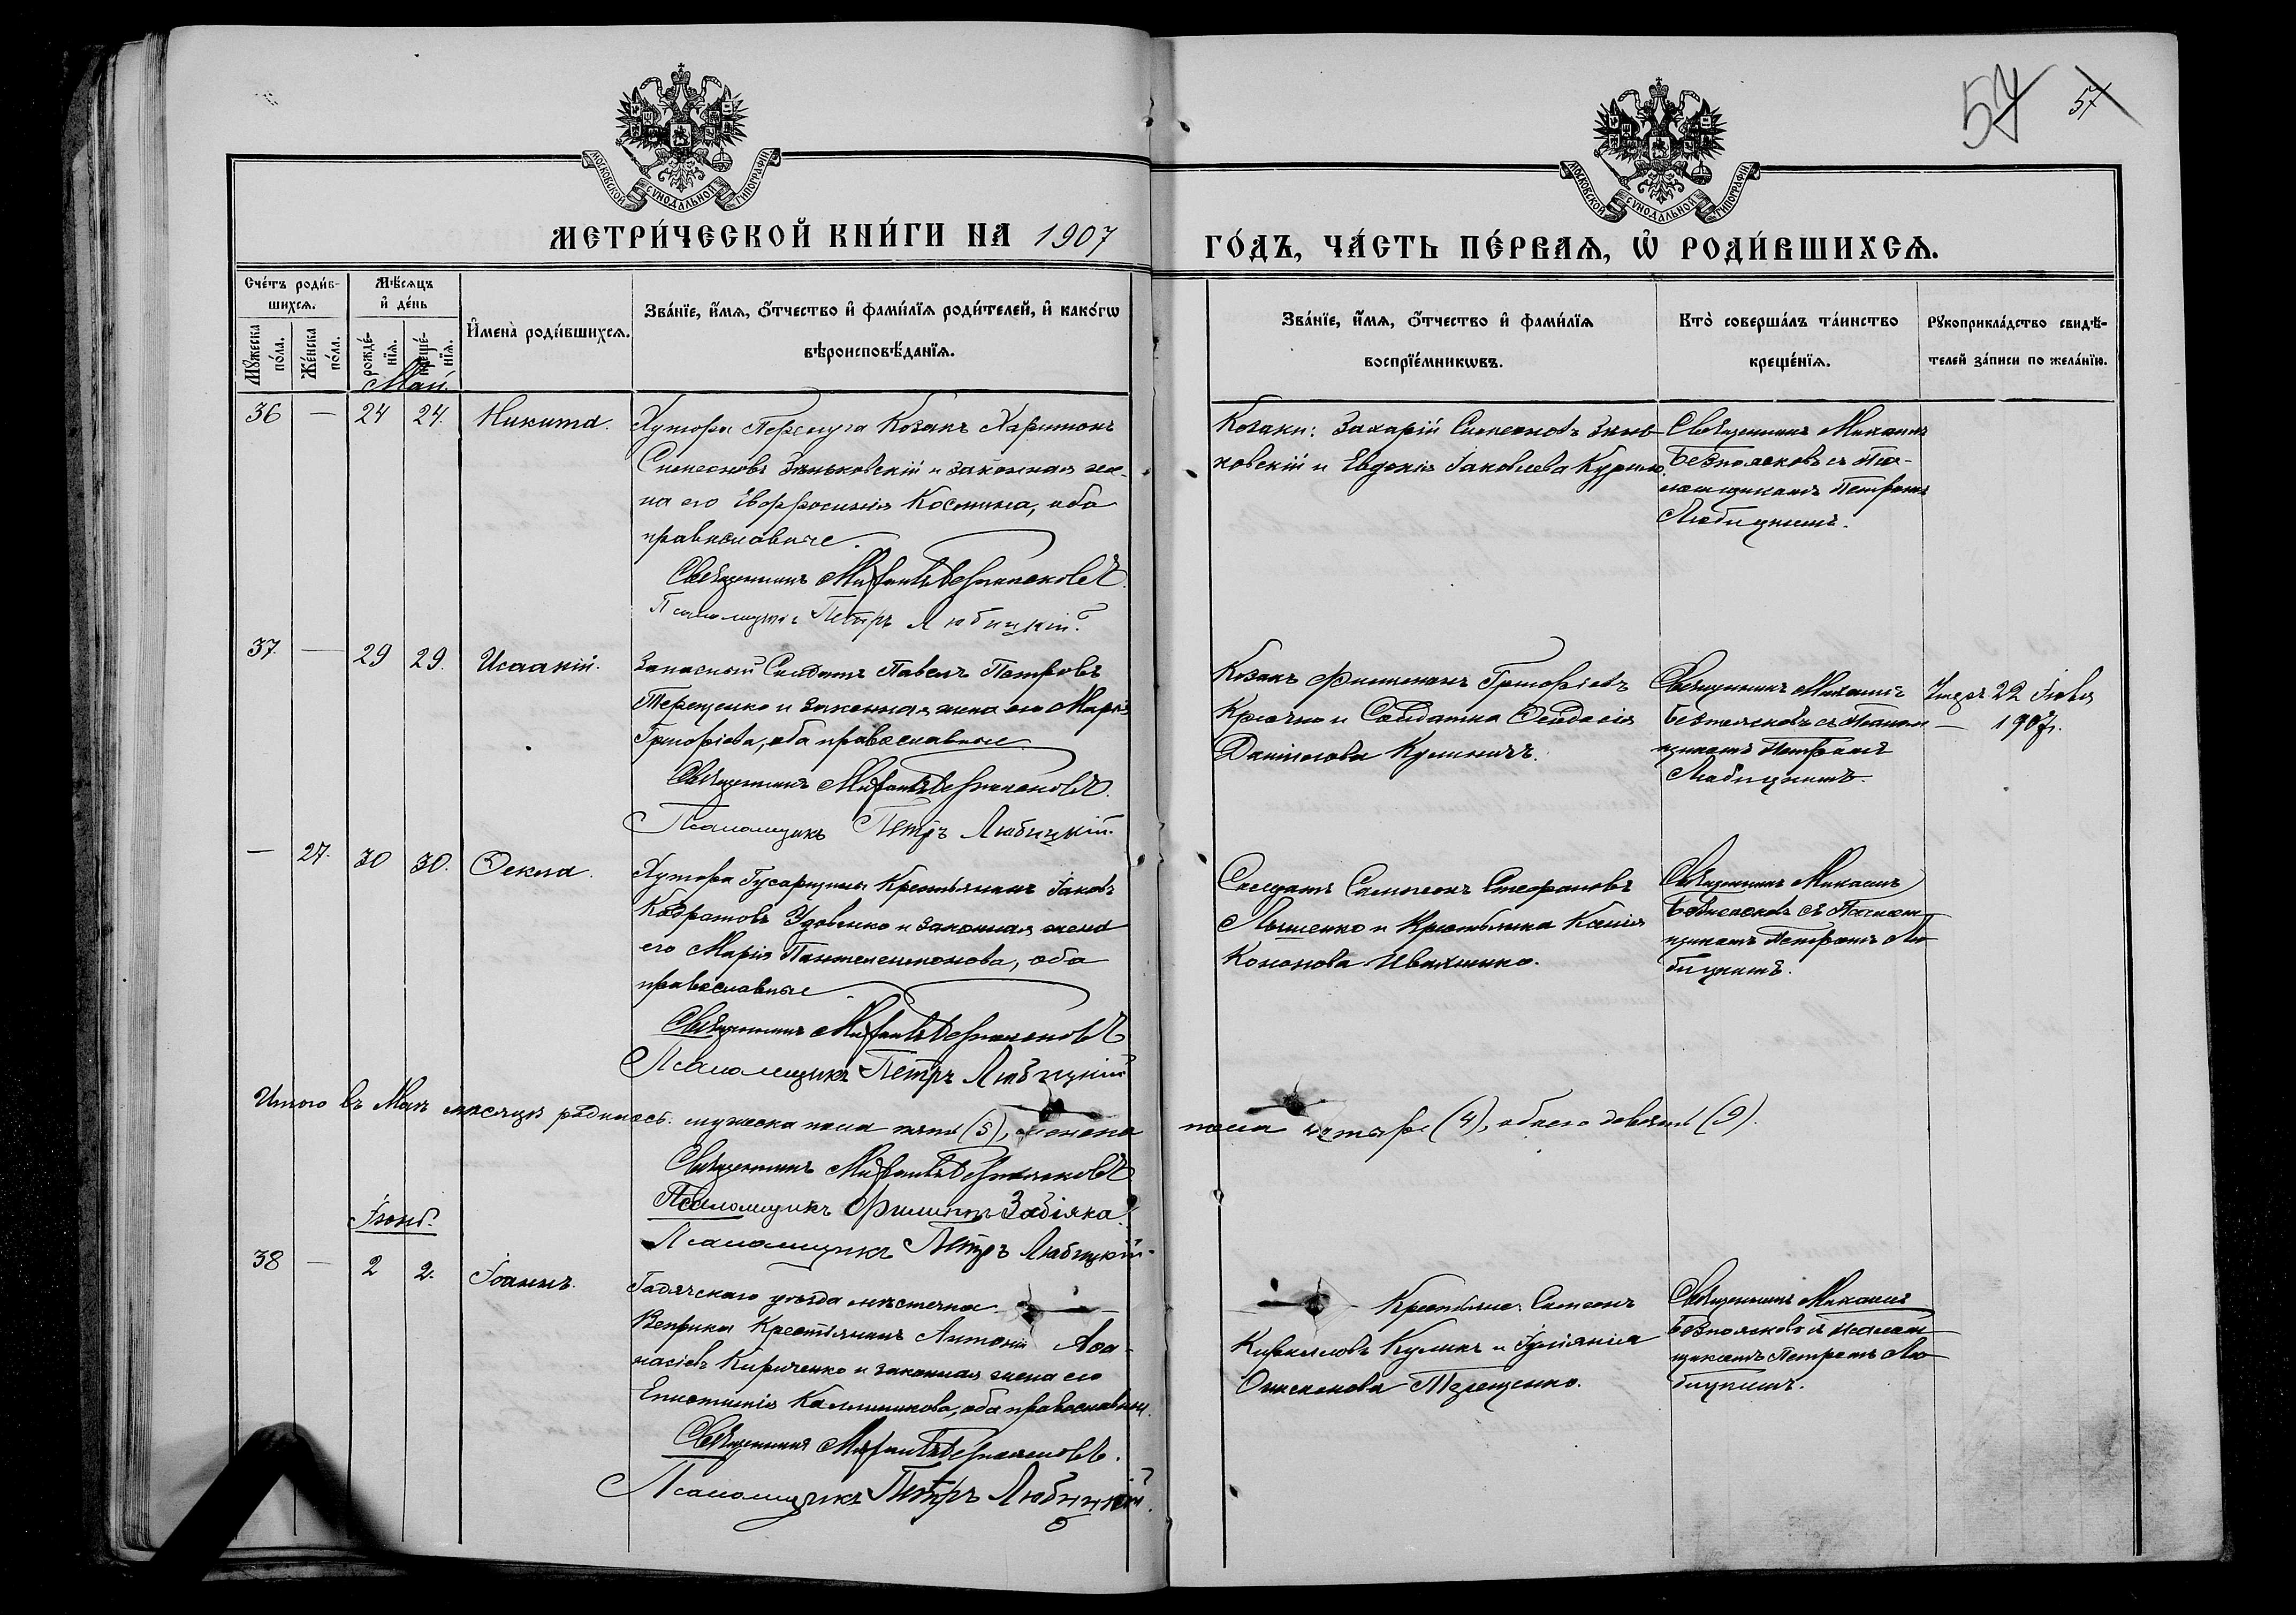 57 57
МОСКОВСКОЙ СУНОДАЛЬНОЙ ТИПОГРАФІИ
МОСКОВСКОЙ СУНОДАЛЬНОЙ ТИПОГРАФІИ
МЕТРИ́ЧЕСКОЙ КНИ́ГИ НА 1907
ГО́ДЪ, ЧА́СТЬ ПЕ́РВАѦ, Ѽ РОДИ́ВШИХСѦ.
Сче́тъ роди́в-
шихсѧ.
Мꙋ́жеска
по́ла.
Же́нска
по́ла.
Мѣ́сѧцъ
и҆ де́нь
рожде́-
нїѧ.
креще́-
нїѧ.
И҆мена̀ роди́вшихсѧ.
Зва́нїе, и҆́мѧ, ѻ҆́тчество и҆ фами́лїѧ роди́телей, и҆ како́гѡ
вѣроисповѣ́данїѧ.
Зва́нїе, и҆́мѧ, ѻ҆́тчество и҆ фами́лїѧ
воспрїе́мникѡвъ.
Кто̀ соверша́лъ та́инство
креще́нїѧ.
Рꙋкоприкла́дство свидѣ́-
телей за́писи по жела́нїю.
Май.
36 — 24 24. Никита.
Хутора Перелуга Козакъ Харитонъ
Симеоновъ Зѣньковскій и законная же-
на его Евфросинія Космина, оба
православные.
Священникъ Михаилъ Безпоясковъ.
Псаломщикъ Петръ Любицкій.
Козаки: Захарій Симеоновъ Зѣнь-
ковскій и Евдокія Іаковлева
Священникъ Михаилъ
Безпоясковъ съ Пса-
ломщикомъ Петромъ
Любицкимъ.
37. — 29 29. Исаакій.
Запасный Солдатъ Павелъ Петровъ
Терещенко и законная жена его Марія
Григоріева, оба православные.
Священникъ Михаилъ Безпоясковъ.
Псаломщикъ Петръ Любицкій.
Козакъ Филимонъ Григоріевъ
Крючко и Солдатка Ѳеодосія
Даніилова Кулиничъ.
Священникъ Михаилъ
Безпоясковъ съ Псалом-
щикомъ Петромъ
Любицкимъ.
Умеръ 22 Іюля
— 1907 г.
— 27. 30 30. Ѳекла.
Хутора Гусарщины Крестьянинъ Іаковъ
Кодратовъ Удовенко и законная жена
его Марія Пантелеимонова, оба
православные
Священникъ Михаилъ Безпоясковъ
Псаломщикъ Петръ Любицкій
Солдатъ Самсонъ Стефановъ
и Крестьянка Ксенія
Кононова Ивахненко.
Священникъ Михаилъ
Безпоясковъ съ Псалом-
щикомъ Петромъ Лю-
бицкимъ.
Итого въ Маѣ мѣсяцѣ родилось: мужеска пола пять (5), женска пола четыре (4), обоего девять (9).
Священникъ Михаилъ Безпоясковъ
Псаломщикъ Филиппъ Забіяка.
Псаломщикъ Петръ Любицкій.
Іюнь.
38 — 2 2. Іоаннъ.
Гадячскаго уѣзда мѣстечка
Веприка Крестьянинъ Антоній Аѳа-
насіевъ Кириченко и законная жена его
Епистимія Каллиникова, оба православные.
Священникъ Михаилъ Безпоясковъ.
Псаломщикъ Петръ Любицкій.
Крестьяне: Симеонъ
Кирилловъ Куликъ и Іуліанія
Терещенко.
Священникъ Михаилъ
Безпоясковъ съ Псалом-
щикомъ Петромъ Лю-
бицкимъ.